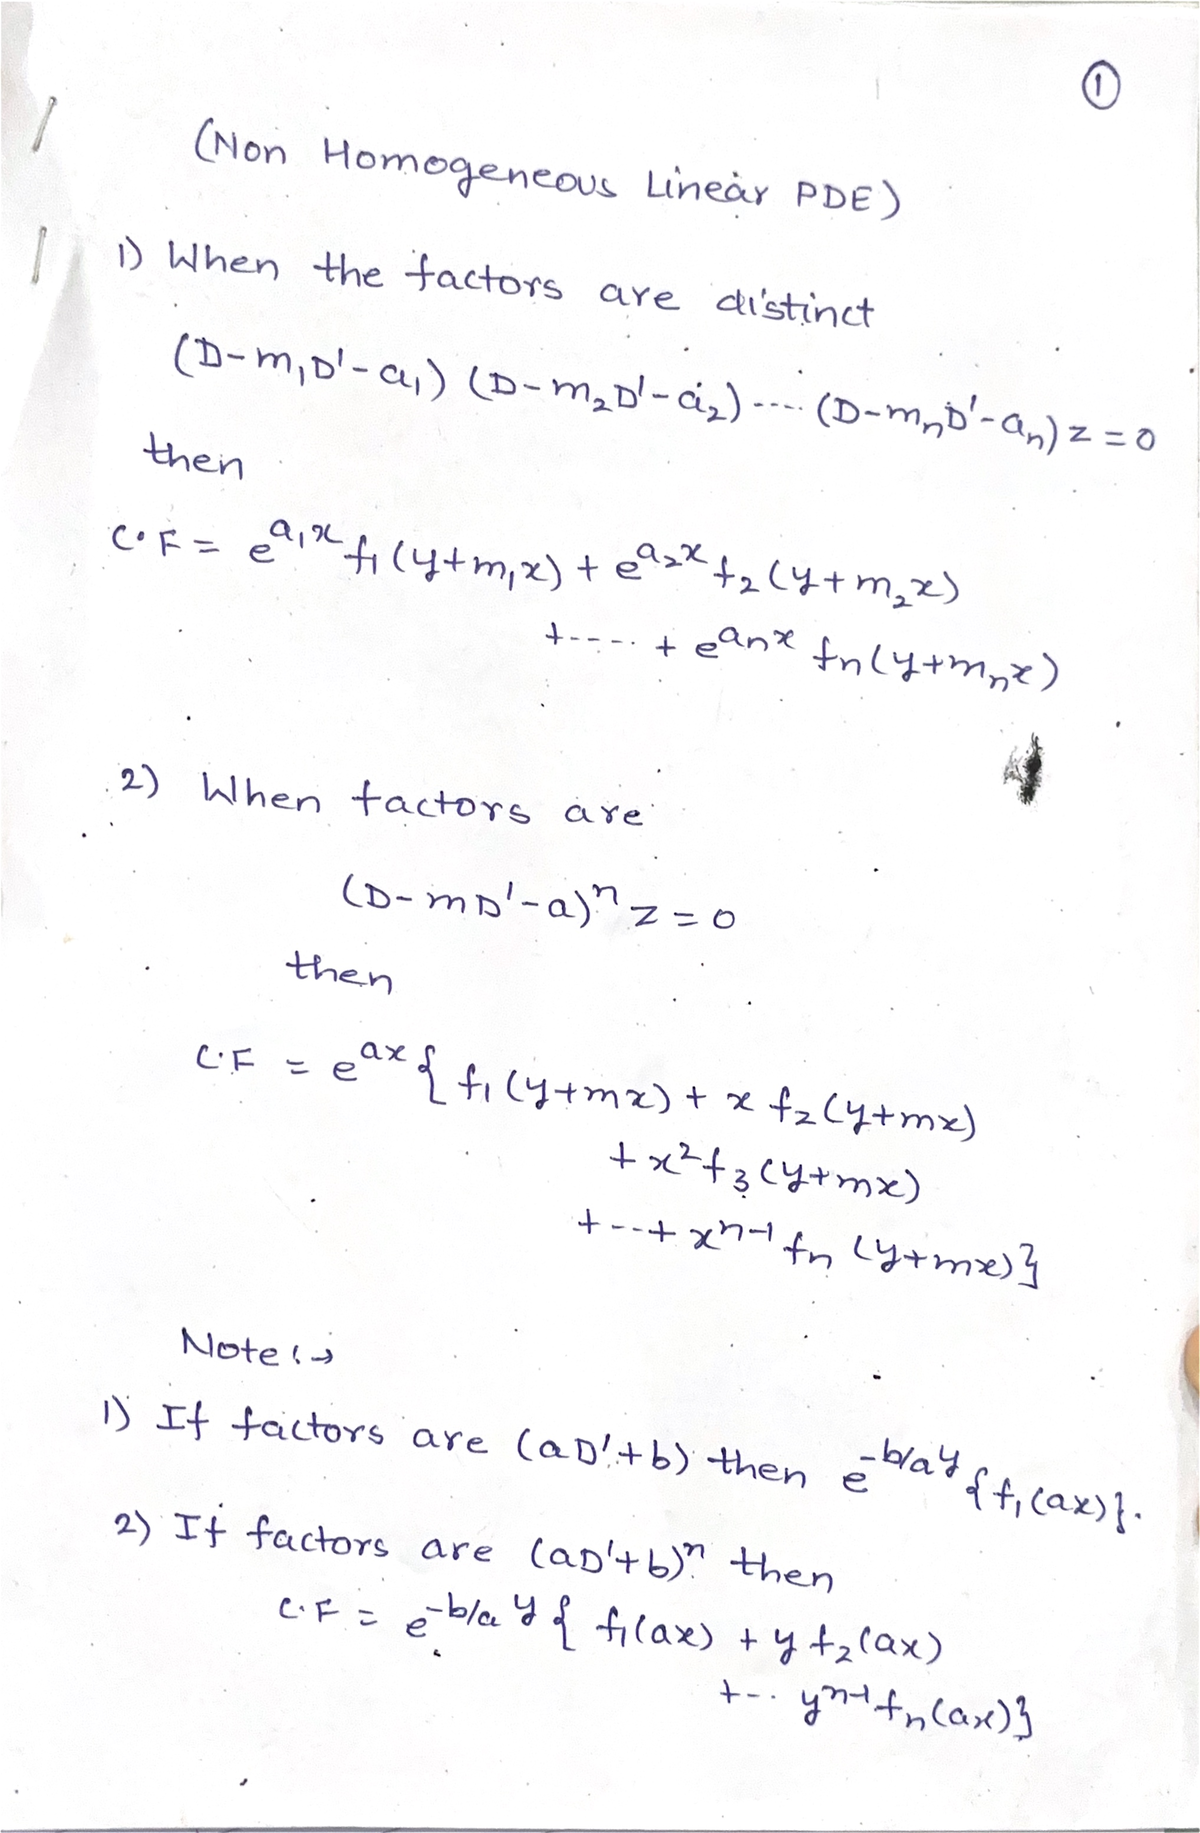 ①
(Non Homogeneous Linear PDE)
1) When the factors are distinct
(D-m₁D'-a₁) (D-m₂D'-a₂) ---- (D-mₙD'-aₙ) z = 0
then
C.F = e^{a₁x} f₁(y+m₁x) + e^{a₂x} f₂(y+m₂x)
+---- + e^{aₙx} fₙ(y+mₙx)
2) When factors are
(D-mD'-a)ⁿ z = 0
then
C.F = e^{ax} { f₁(y+mx) + x f₂(y+mx)
+ x² f₃(y+mx)
+---+ xⁿ⁻¹ fₙ (y+mx)}
Note :→
1) If factors are (aD'+b) then e^{-b/a y} {f₁(ax)}.
2) If factors are (aD'+b)ⁿ then
C.F = e^{-b/a y} { f₁(ax) + y f₂(ax)
+--. yⁿ⁻¹ fₙ(ax)}